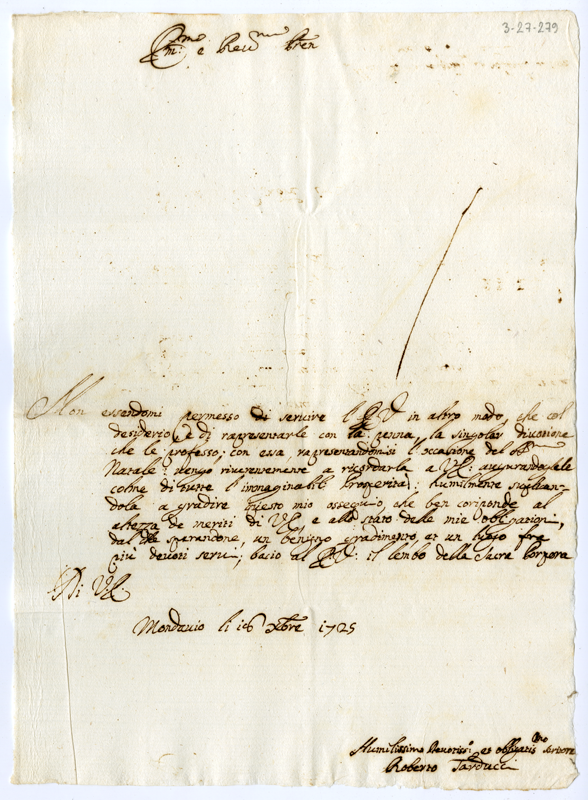 3-27-279
Em:mo e Reu:mo Pren
Non essendomi permesso di seruire l'E V in altro modo, che col
desiderio, e di rapresentarle con la penna, la singolar diuotione
che le professo; con essa, rapresentandomisi l'occasione del
Natale: uengo riuerentemente a ricordarla a VE: augurandole
colme di tutte l'immaginabili Prosperità; humilmente suplican-
dola a gradire questo mio ossequio, che ben coriponde al
altezza de meriti di VE, e allo stato delle mie obligationi,
dal sparandone, un benigno gradimento, et un luogo fra
più deuoti serui; bacio al EV: il lembo della Sacra Porpora
Di VE.
Mondauio li 16 Xbre 1725
Humilissimo Deuotiss:o et obligatis:mo seruitore
Roberto Tarducci